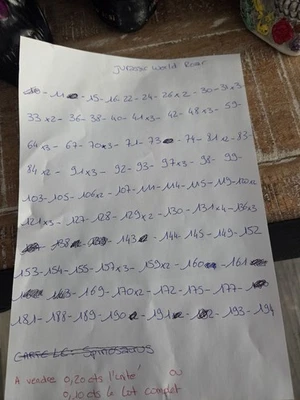 Jurassic World Roar
11 - 15 - 16 - 22 - 24 - 26x2 - 30 - 31x3
33x2 - 36 - 38 - 40 - 41x3 - 42 - 48x3 - 59 -
64x3 - 67 - 70x3 - 71 - 73 - 74 - 81x2 - 83 -
84x2 - 91x3 - 92 - 93 - 97x3 - 98 - 99 -
103 - 105 - 106x2 - 107 - 111 - 114 - 115 - 119 - 120x2
121x3 - 127 - 128 - 129x2 - 130 - 131x4 - 136x3
138 - 139 - 143 - 144 - 145 - 149 - 152
153 - 154 - 155 - 157x3 - 159x2 - 160 - 161
163 - 169 - 170x2 - 172 - 175 - 177 -
181 - 188 - 189 - 190 - 191 - 192 - 193 - 194
CARTE LE: SPINOSAURUS
A vendre 0,20 cts l'unité ou
0,10 cts le lot complet